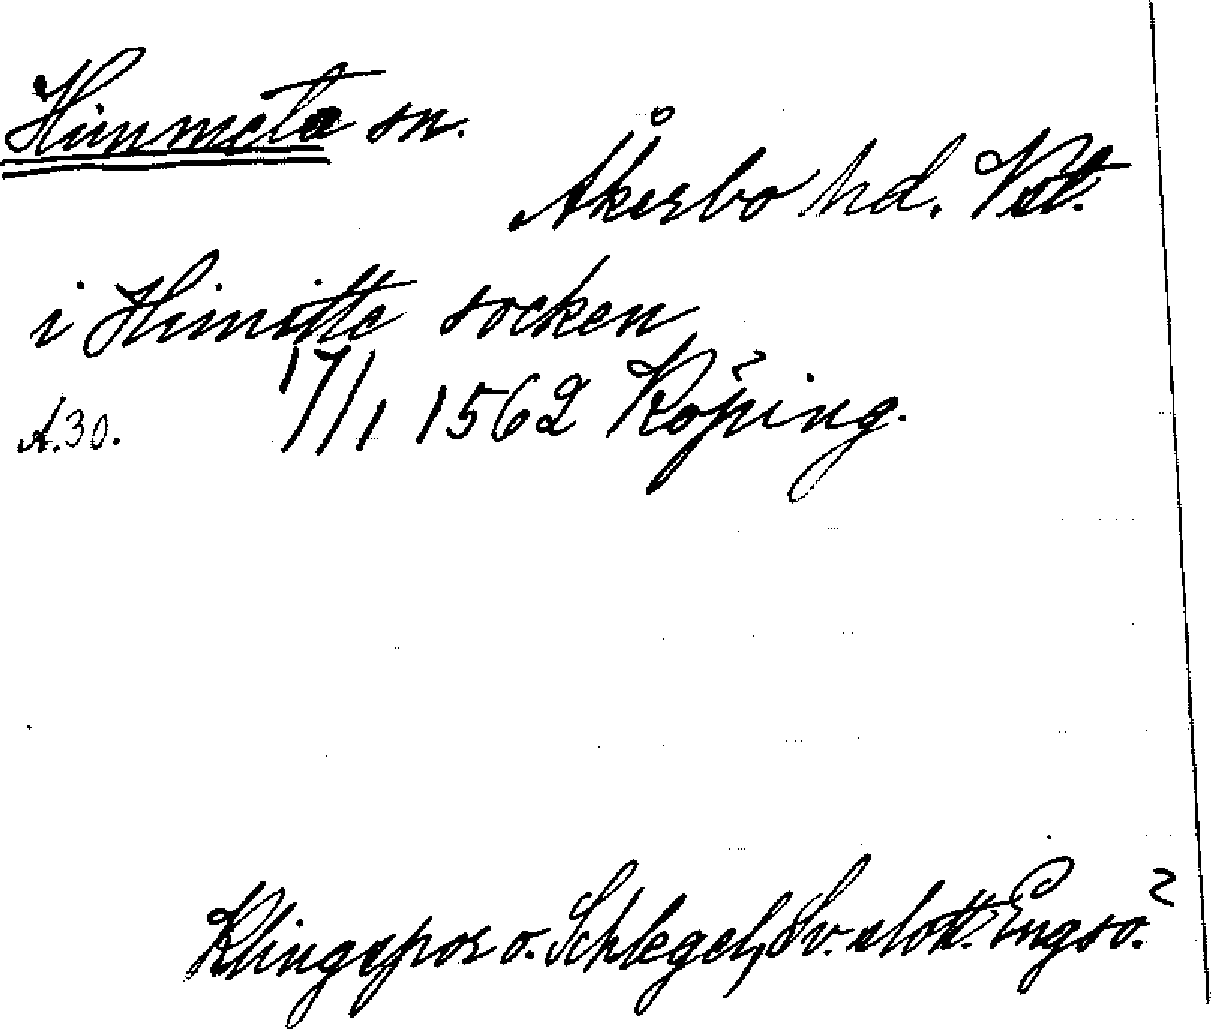 Himmeta sn.
Åkerbo hd. Vstl.
i Himitte socken
A.30. 17/1 1562 Köping.
Klingspor o. Schlegel, Sv. slott. Engsö.